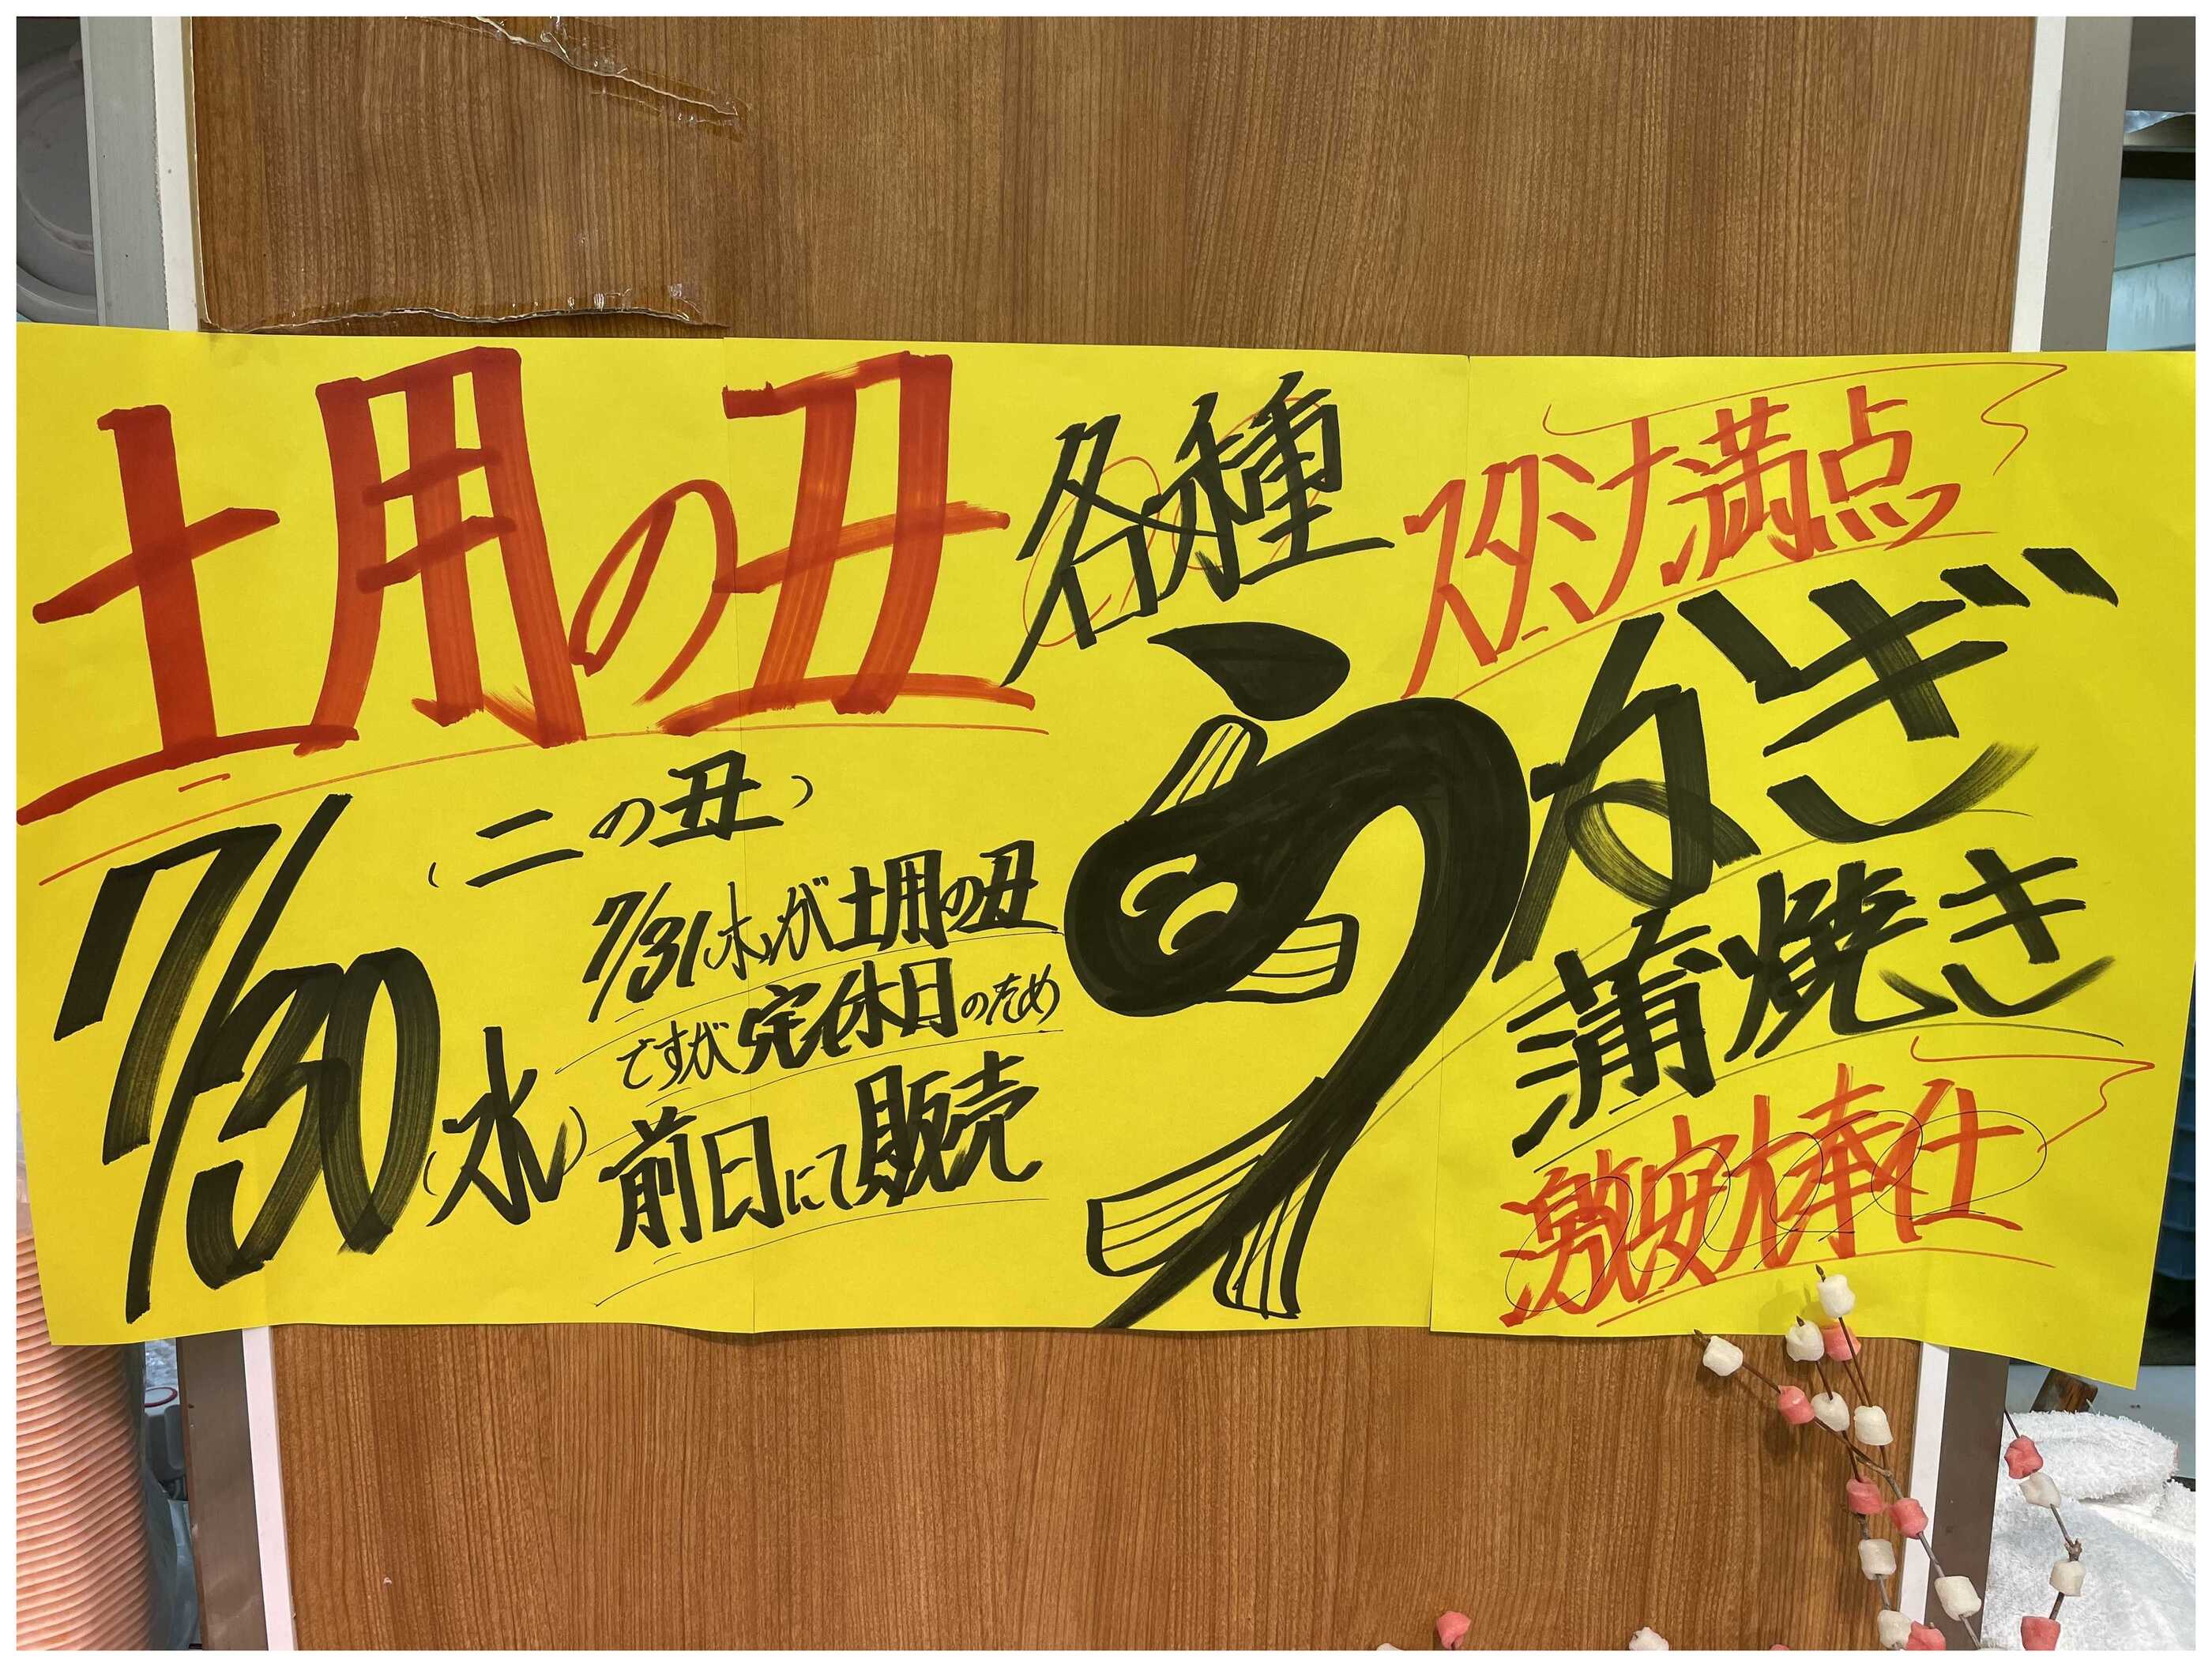 土用の丑
(二の丑)
7/30(水)
7/31(木)が土用の丑
ですが定休日のため
前日にて販売
各種
スタミナ満点
うなぎ
蒲焼き
激安大奉仕